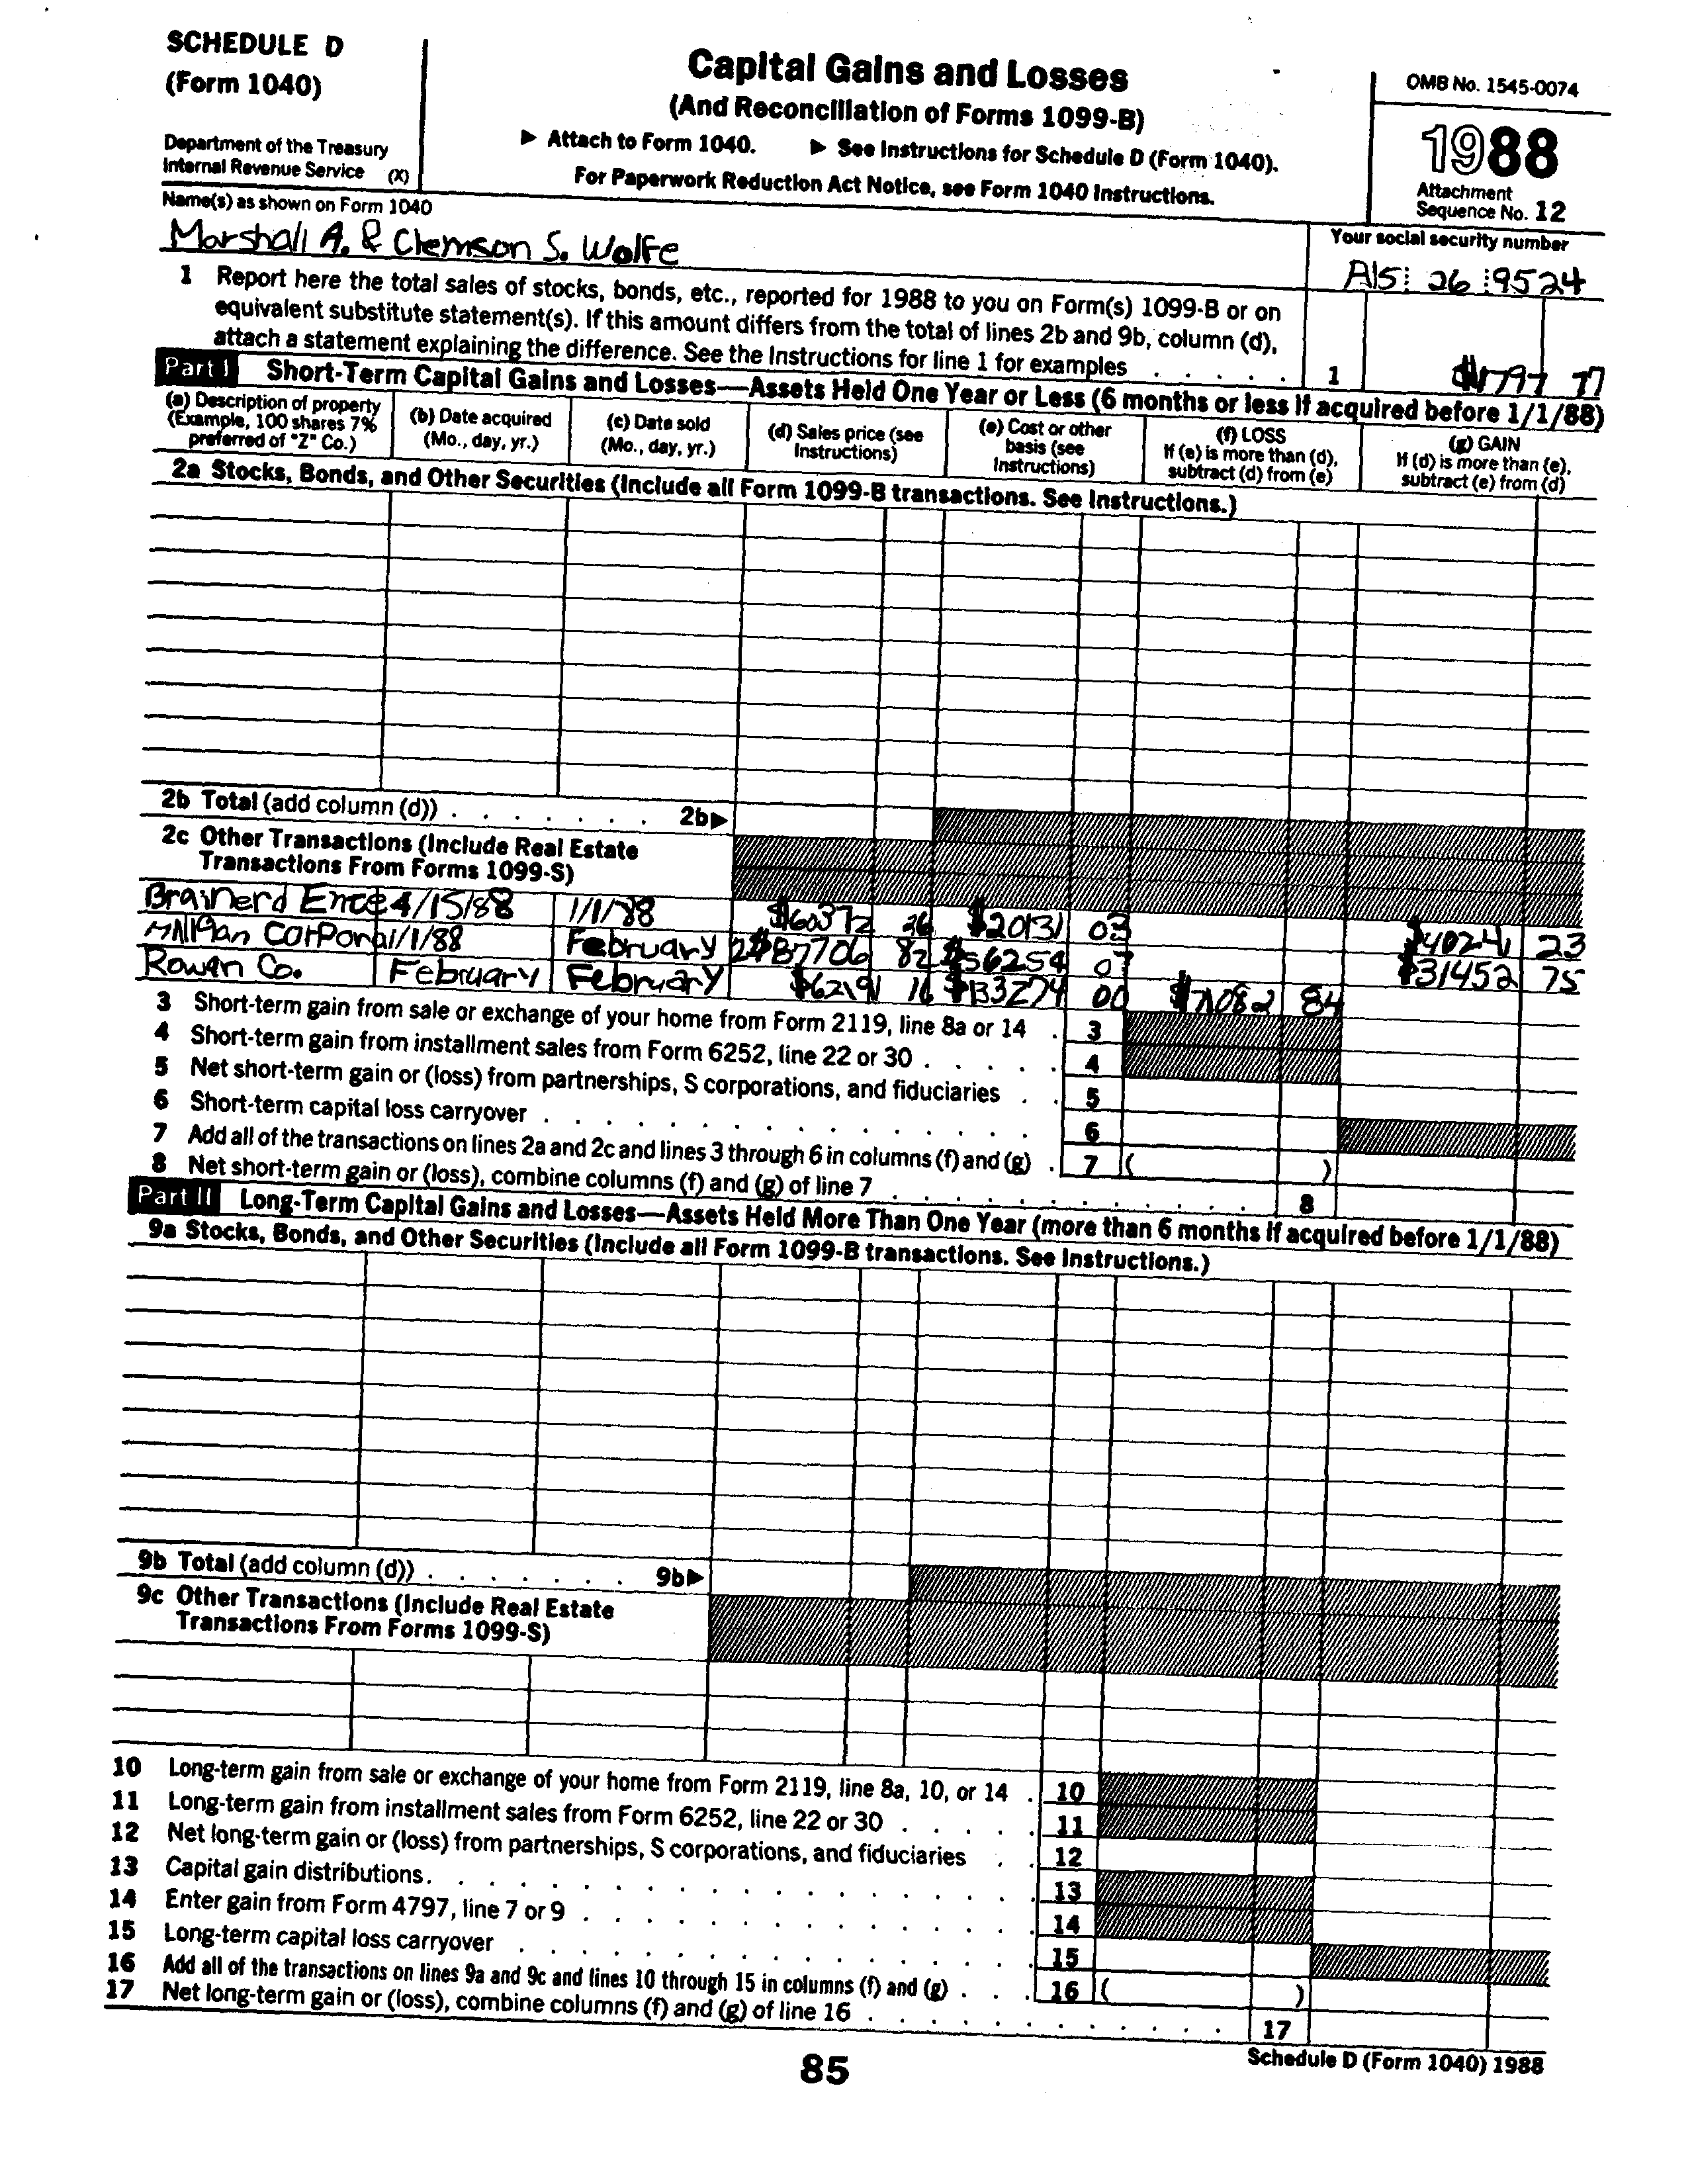 SCHEDULE D
(Form 1040)
Department of the Treasury
Internal Revenue Service (X)
Capital Gains and Losses
(And Reconciliation of Forms 1099-B)
▶ Attach to Form 1040. ▶ See Instructions for Schedule D (Form 1040).
For Paperwork Reduction Act Notice, see Form 1040 Instructions.
OMB No. 1545-0074
1988
Attachment
Sequence No. 12
Name(s) as shown on Form 1040
Marshall A. & Clemson S. Wolfe
Your social security number
A15 26 9524
1 Report here the total sales of stocks, bonds, etc., reported for 1988 to you on Form(s) 1099-B or on
equivalent substitute statement(s). If this amount differs from the total of lines 2b and 9b, column (d),
attach a statement explaining the difference. See the Instructions for line 1 for examples . . . . . 1 77
Part I Short-Term Capital Gains and Losses—Assets Held One Year or Less (6 months or less if acquired before 1/1/88)
(a) Description of property
(Example, 100 shares 7%
preferred of "Z" Co.)
(b) Date acquired
(Mo., day, yr.)
(c) Date sold
(Mo., day, yr.)
(d) Sales price (see
Instructions)
(e) Cost or other
basis (see
Instructions)
(f) LOSS
If (e) is more than (d),
subtract (d) from (e)
(g) GAIN
If (d) is more than (e),
subtract (e) from (d)
2a Stocks, Bonds, and Other Securities (Include all Form 1099-B transactions. See Instructions.)
2b Total (add column (d)) . . . . . . . 2b▶
2c Other Transactions (Include Real Estate
Transactions From Forms 1099-S)
Brainerd 4/15/88 1/1/88 $60372 26 $20131 03 $40241 23
1/1/88 February $87706 82 $56254 07 $31452 75
Rowan Co. February February $62191 16 $133274 00 84
3 Short-term gain from sale or exchange of your home from Form 2119, line 8a or 14 . 3
4 Short-term gain from installment sales from Form 6252, line 22 or 30 . . . . . 4
5 Net short-term gain or (loss) from partnerships, S corporations, and fiduciaries . . 5
6 Short-term capital loss carryover . . . . . . . . . . . . . . . . 6
7 Add all of the transactions on lines 2a and 2c and lines 3 through 6 in columns (f) and (g) . 7 ( )
8 Net short-term gain or (loss), combine columns (f) and (g) of line 7 . . . . . . . . . . . . . 8
Part II Long-Term Capital Gains and Losses—Assets Held More Than One Year (more than 6 months if acquired before 1/1/88)
9a Stocks, Bonds, and Other Securities (Include all Form 1099-B transactions. See Instructions.)
9b Total (add column (d)) . . . . . . . 9b▶
9c Other Transactions (Include Real Estate
Transactions From Forms 1099-S)
10 Long-term gain from sale or exchange of your home from Form 2119, line 8a, 10, or 14 . 10
11 Long-term gain from installment sales from Form 6252, line 22 or 30 . . . . . 11
12 Net long-term gain or (loss) from partnerships, S corporations, and fiduciaries . . 12
13 Capital gain distributions . . . . . . . . . . . . . . . . . . 13
14 Enter gain from Form 4797, line 7 or 9 . . . . . . . . . . . . . 14
15 Long-term capital loss carryover . . . . . . . . . . . . . . . . 15
16 Add all of the transactions on lines 9a and 9c and lines 10 through 15 in columns (f) and (g) . . . 16 ( )
17 Net long-term gain or (loss), combine columns (f) and (g) of line 16 . . . . . . . . . . . . . 17
85
Schedule D (Form 1040) 1988